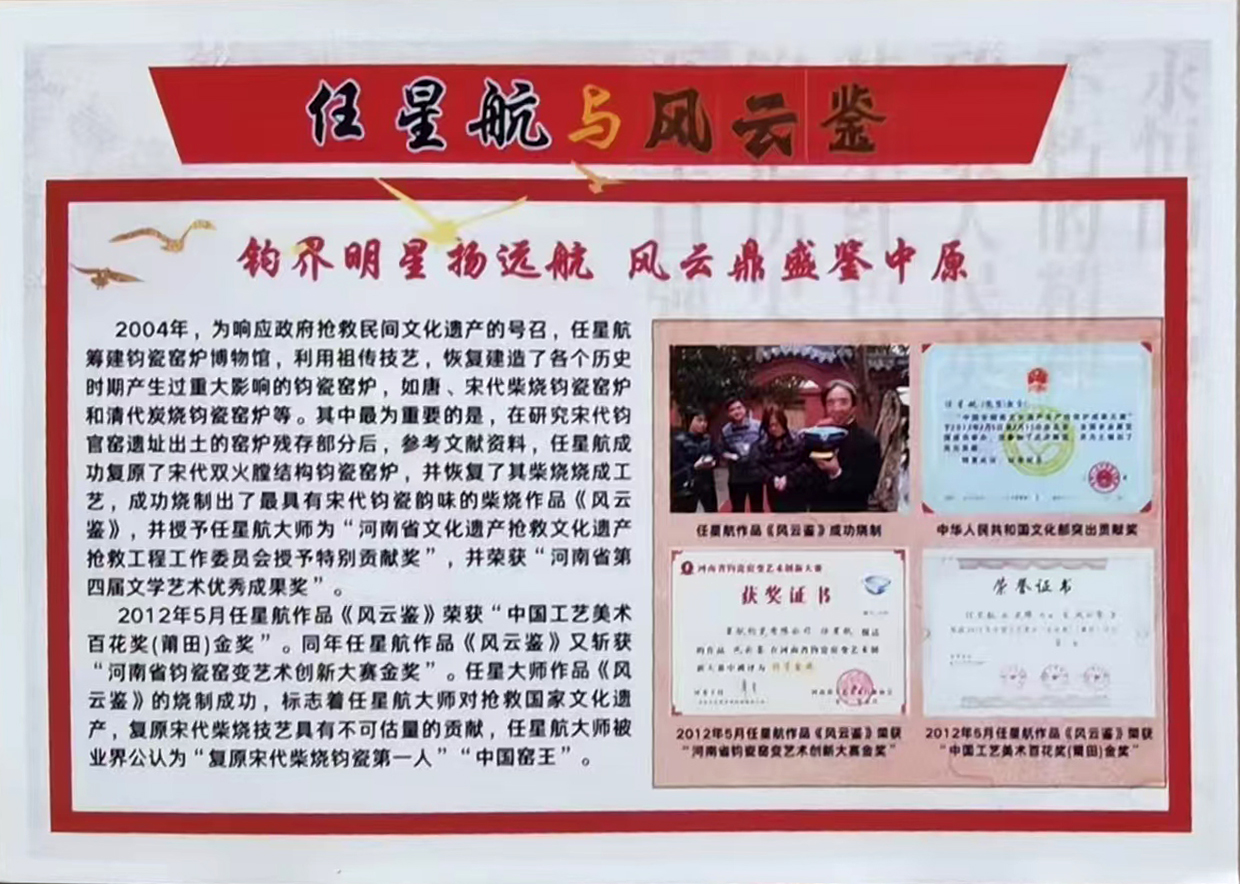 任星航与风云鉴
钧界明星扬远航 风云鼎盛鉴中原
2004年，为响应政府抢救民间文化遗产的号召，任星航
筹建钧瓷窑炉博物馆，利用祖传技艺，恢复建造了各个历史
时期产生过重大影响的钧瓷窑炉，如唐、宋代柴烧钧瓷窑炉
和清代炭烧钧瓷窑炉等。其中最为重要的是，在研究宋代钧
官窑遗址出土的窑炉残存部分后，参考文献资料，任星航成
功复原了宋代双火膛结构钧瓷窑炉，并恢复了其柴烧烧成工
艺，成功烧制出了最具有宋代钧瓷韵味的柴烧作品《风云
鉴》，并授予任星航大师为“河南省文化遗产抢救文化遗产
抢救工程工作委员会授予特别贡献奖”，并荣获“河南省第
四届文学艺术优秀成果奖”。
2012年5月任星航作品《风云鉴》荣获“中国工艺美术
百花奖(莆田)金奖”。同年任星航作品《风云鉴》又斩获
“河南省钧瓷窑变艺术创新大赛金奖”。任星大师作品《风
云鉴》的烧制成功，标志着任星航大师对抢救国家文化遗
产，复原宋代柴烧技艺具有不可估量的贡献，任星航大师被
业界公认为“复原宋代柴烧钧瓷第一人”“中国窑王”。
任星航作品《风云鉴》成功烧制
中华人民共和国文化部突出贡献奖
河南省钧瓷窑变艺术创新大赛
获奖证书
荣誉证书
2012年5月任星航作品《风云鉴》荣获
“河南省钧瓷窑变艺术创新大赛金奖”
2012年5月任星航作品《风云鉴》荣获
“中国工艺美术百花奖(莆田)金奖”